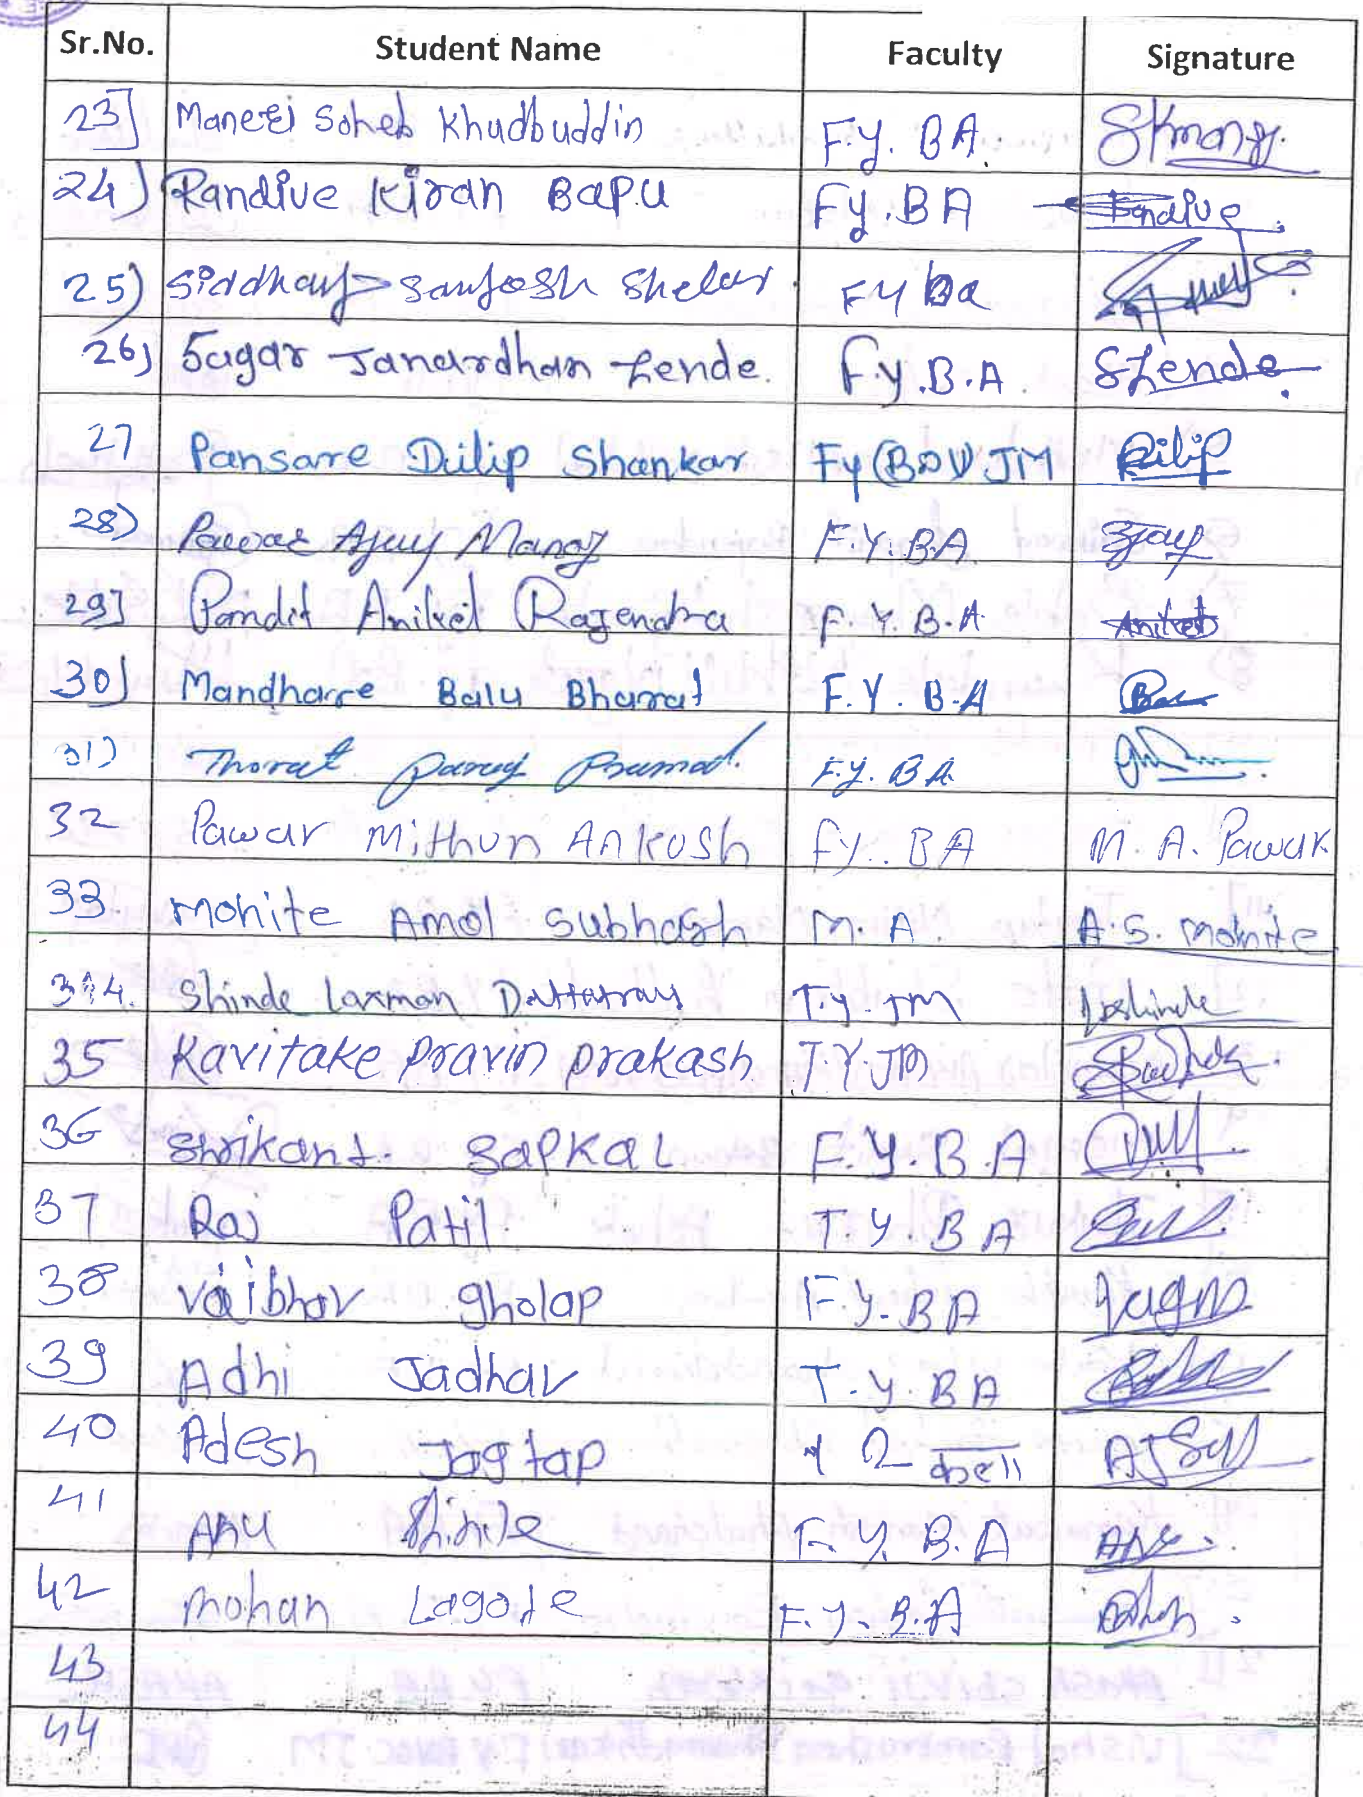 Sr.No. Student Name Faculty Signature
23] Maneri Soheb Khudbuddin F.y. BA.
24) Randive Kiran Bapu Fy.BA Randive
25) Siddharj Santosh Shelar. FY ba
26) Sagar Janardhan Zende. F.y.B.A SZende.
27 Pansare Dilip Shankar Fy (BOV JM Dilip
28) Pawar Ajay Manoj F.Y.B.A Ajay
29] Pandit Aniket Rajendra F.Y.B.A Aniket
30) Mandhare Balu Bharat F.Y.B.A
31) Thorat Pramod. F.y. BA.
32 Pawar Mithun Ankush Fy.. BA M. A. Pawar
33. Mohite Amol Subhash M.A. A.S. Mohite
34. Shinde Laxman Dattatray T.y.JM
35 Kavitake Pravin prakash T.Y.JM
36 Shrikant. Sapkal F.Y.B.A
37 Raj Patil T.Y.BA
38 Vaibhav gholap F.Y.BA
39 Adhi Jadhav T.y.BA
40 Adesh Jagtap
41 Anu Shinde F.Y.B.A
42 Mohan Lagode F.Y.B.A
43
44